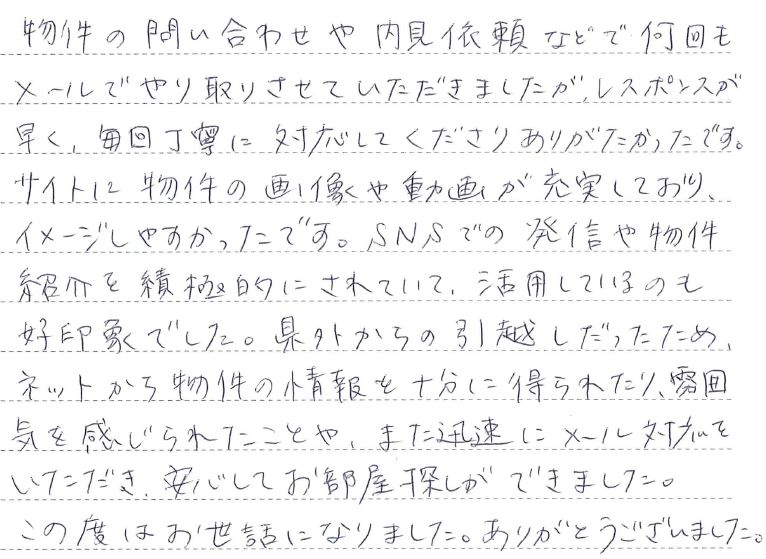 物件の問い合わせや内見依頼などで何回も
メールでやり取りさせていただきましたが、レスポンスが
早く、毎回丁寧に対応してくださりありがたかったです。
サイトに物件の画像や動画が充実しており、
イメージしやすかったです。SNSでの発信や物件
紹介を積極的にされていて、活用しているのも
好印象でした。県外からの引越しだったため、
ネットから物件の情報を十分に得られたり、雰囲
気を感じられたことや、また迅速にメール対応を
いただき、安心してお部屋探しができました。
この度はお世話になりました。ありがとうございました。